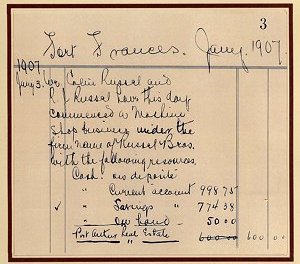 3
Fort Frances. Jany. 1907.
1907
Jany 3. We, Colin Russel and
R. J. Russel have this day
commenced a "Machine
Shop business under the
firm name of Russel Bros.
with the following resources.
Cash: on deposite
" Current account 998 75
✓ " Savings " 774 38
" on hand 50 00
Port Arthur Real Estate 600 00 600 00